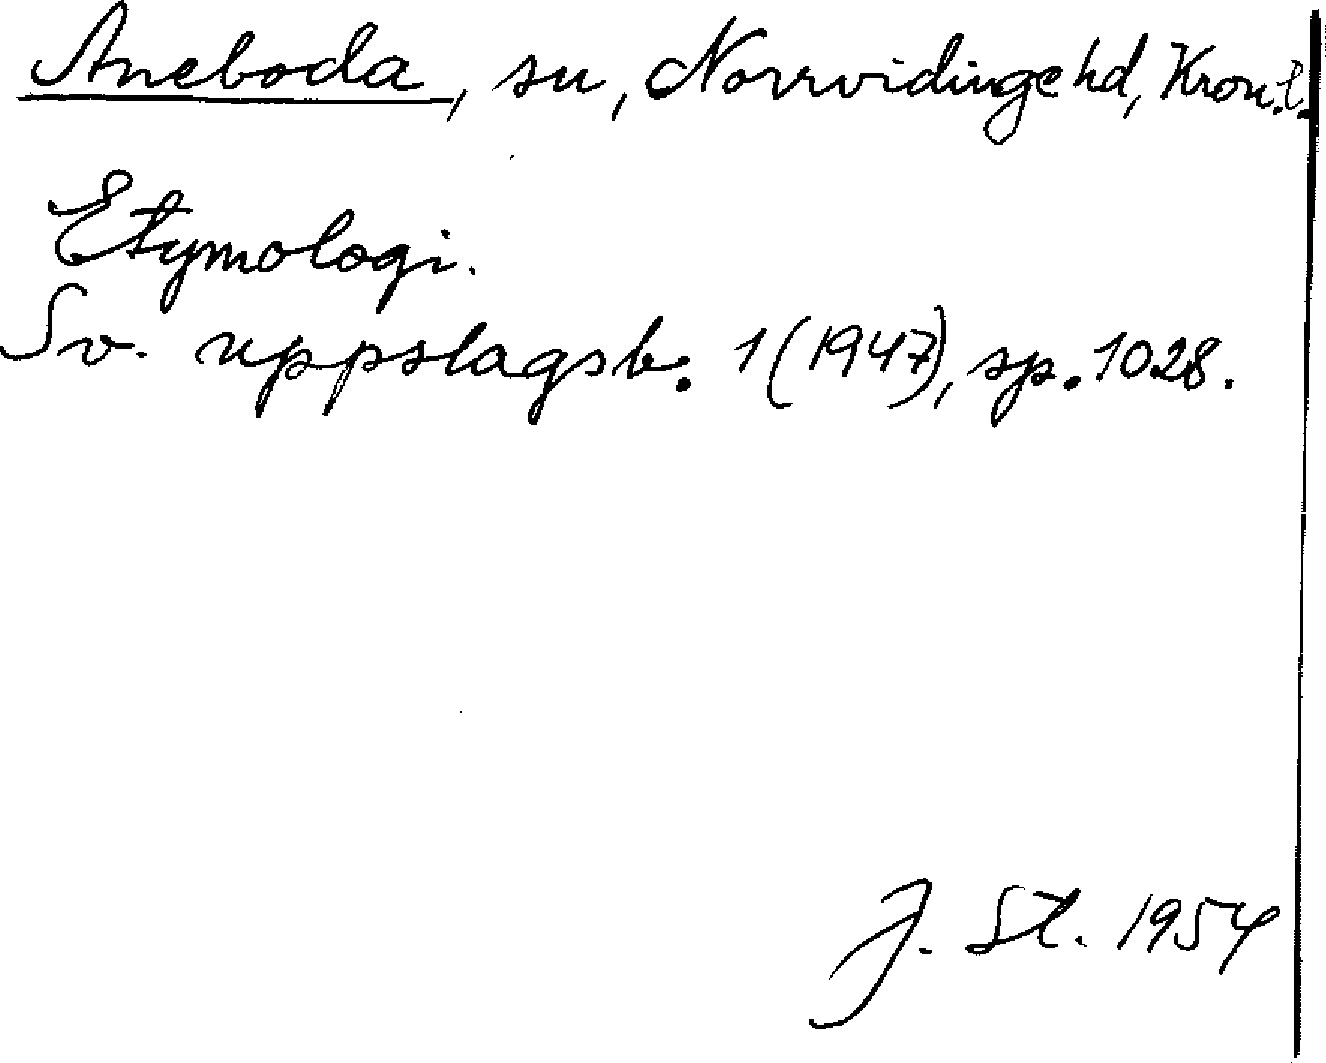 Aneboda, sn, Norrvidinge hd, Kron.l.
Etymologi.
Sv. uppslagsb. 1 (1947), sp. 1028.
J. St. 1954